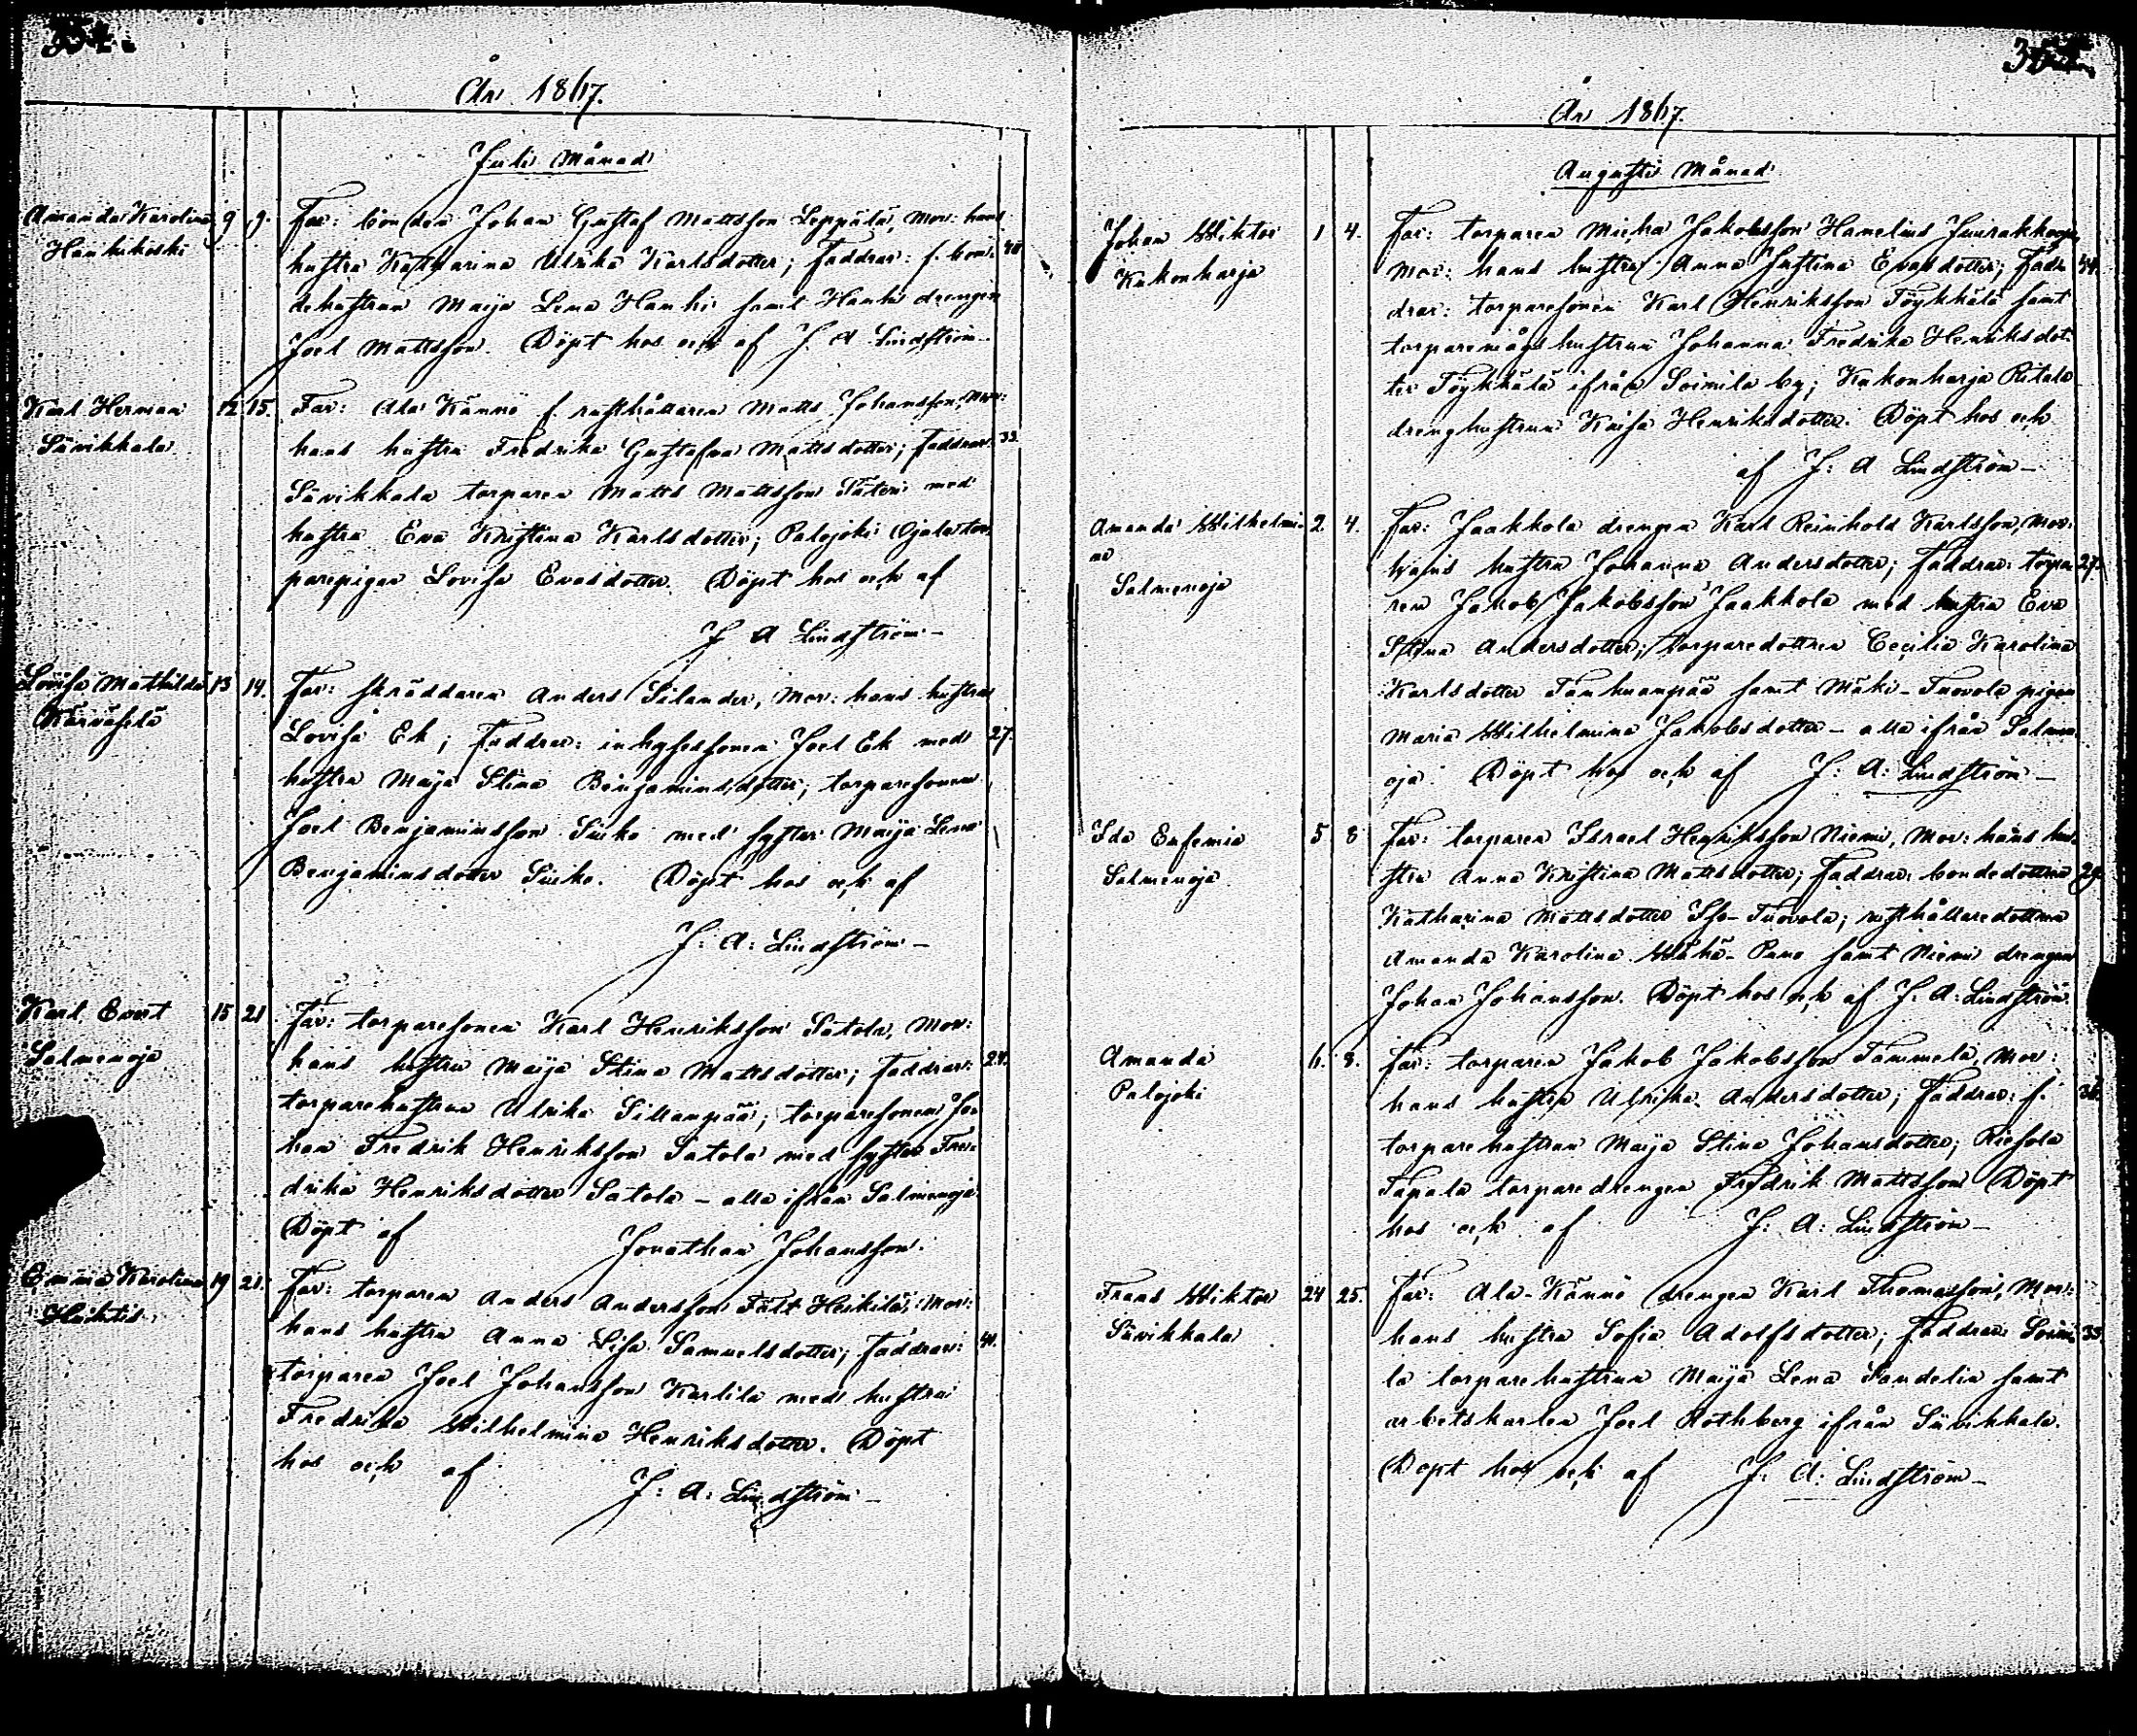 År 1867.
Juli Månad
Amanda Karolina 9 9. Far: bonden Johan Gustaf Mattsson Leppälä, Mor: hans
Hanhikoski hustru Katharina Ulrika Karlsdotter; Faddrar: f. bon- 40
dehustrun Maija Lena Hanhi samt Hanhi drengen
Joel Mattsson. Döpt hos och af J. A Lindström
Karl Herman 12. 15. Far: Ala Kännö f. rusthållaren Matts Johansson, Mor:
Sävikkala hans hustru Fredrika Gustafva Mattsdotter; Faddrar: 33.
Sävikkala torparen Matts Mattsson med
hustru Eva Kristina Karlsdotter; Palojoki Ojala tor-
parepigan Lovisa Evasdotter. Döpt hos och af
J A Lindström
Lovisa Mathilda 13 14. Far: skräddaren Anders Silander, Mor: hans hustru
Lovisa Ek; Faddrar: inhysessonen Joel Ek med 27.
hustru Maija Stina Benjaminsdotter; torparesonen
Joel Benjaminsson Siiko med syster Maija Lena
Benjaminsdotter Siiko. Döpt hos och af
J: A: Lindström
Karl Evert 15 21. Far: torparesonen Karl Henriksson Satola, Mor:
Salmenoja hans hustru Maija Stina Mattsdotter; Faddrar: 24.
torparehustrun Ulrika Sillanpää; torparesonen Jo-
han Fredrik Henriksson Satola med syster Fre-
drika Henriksdotter Satola - alla ifrån Salmenoja.
Döpt af Jonathan Johansson.
Emma Karolina 19 21. Far: torparen Anders Andersson Fält Heikilä, Mor:
hans hustru Anna Lisa Samuelsdotter; Faddrar: 40.
torparen Joel Johansson Karlila med hustru
Fredrika Wilhelmina Henriksdotter. Döpt
hos och af J: A: Lindström
År 1867.
Augusti Månad
Johan Wiktor 1 4. Far: torparen Micha Jakobsson Hamelius
Kukonharja Mor: hans hustru Anna Justina Evasdotter; Fad- 44.
drar: torparesonen Karl Henriksson Töykkälä samt
torparemågshustrun Johanna Fredrika Henriksdot-
ter Töykkälä ifrån Loimila by; Kukonharja Ritala
drenghustrun Kaisa Henriksdotter. Döpt hos och
af J: A Lindström
Amanda Wilhelmi- 2. 4. Far: Jaakkola drengen Karl Reinhold Karlsson, Mor:
na hans hustru Johanna Andersdotter; Faddrar: torpa- 27.
Salmenoja ren Jakob Jakobsson Jaakkola med hustru Eva
Stina Andersdotter; torparedottren Cecilia Karolina
Karlsdotter Tanhuanpää samt Mäki-Tuovola pigan
Maria Wilhelmina Jakobsdotter - alla ifrån Salmen-
oja. Döpt hos och af J: A: Lindström
Ida Eufemia 5 8 Far: torparen Israel Henriksson Niemi, Mor: hans hu-
Salmenoja stru Anna Kristina Mattsdotter; Faddrar: bondedottren 29.
Katharina Mattsdotter Iso-Tuovola; rusthållaredottren
Amanda Karolina Wähä-Puno samt Niemi drengen
Johan Johansson. Döpt hos och af J: A: Lindström.
Amanda 6. 8. Far: torparen Jakob Jakobsson Tammela, Mor:
Palojoki hans hustru Ulrika Andersdotter; Faddrar: f. 36
torparehustrun Maija Stina Johansdotter; Riehola
Tapala torparedrengen Fredrik Mattsson Döpt
hos och af J: A: Lindström
Frans Wiktor 24 25. Far: Ala-Kännö drengen Karl Thomasson, Mor:
Sävikkala hans hustru Sofia Adolfsdotter; Faddrar: Loimi- 35
la torparehustrun Maija Lena Sandelin samt
arbetskarlen Joel Rothberg ifrån Sävikkala.
Döpt hos och af J: A: Lindström